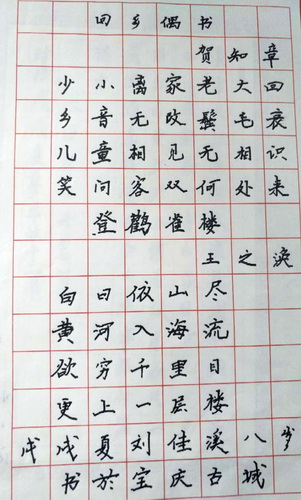 回乡偶书
贺知章
少小离家老大回
乡音无改鬓毛衰
儿童相见无相识
笑问客双何处来
登鹳雀楼
王之涣
白日依山尽
黄河入海流
欲穷千里目
更上一层楼
戊戌夏刘佳溪八岁
书於宝庆古城